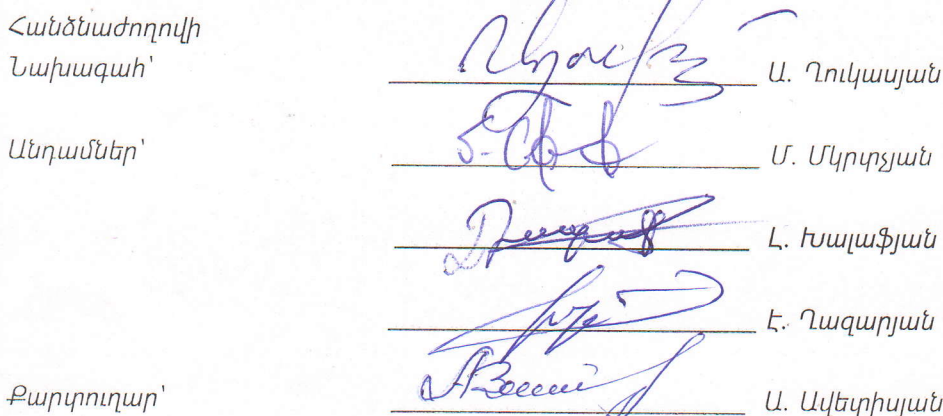 Հանձնաժողովի
Նախագահ՝ Ա. Ղուկասյան
Անդամներ՝ Մ. Մկրտչյան
Լ. Խալաֆյան
Է. Ղազարյան
Քարտուղար՝ Ա. Ավետիսյան